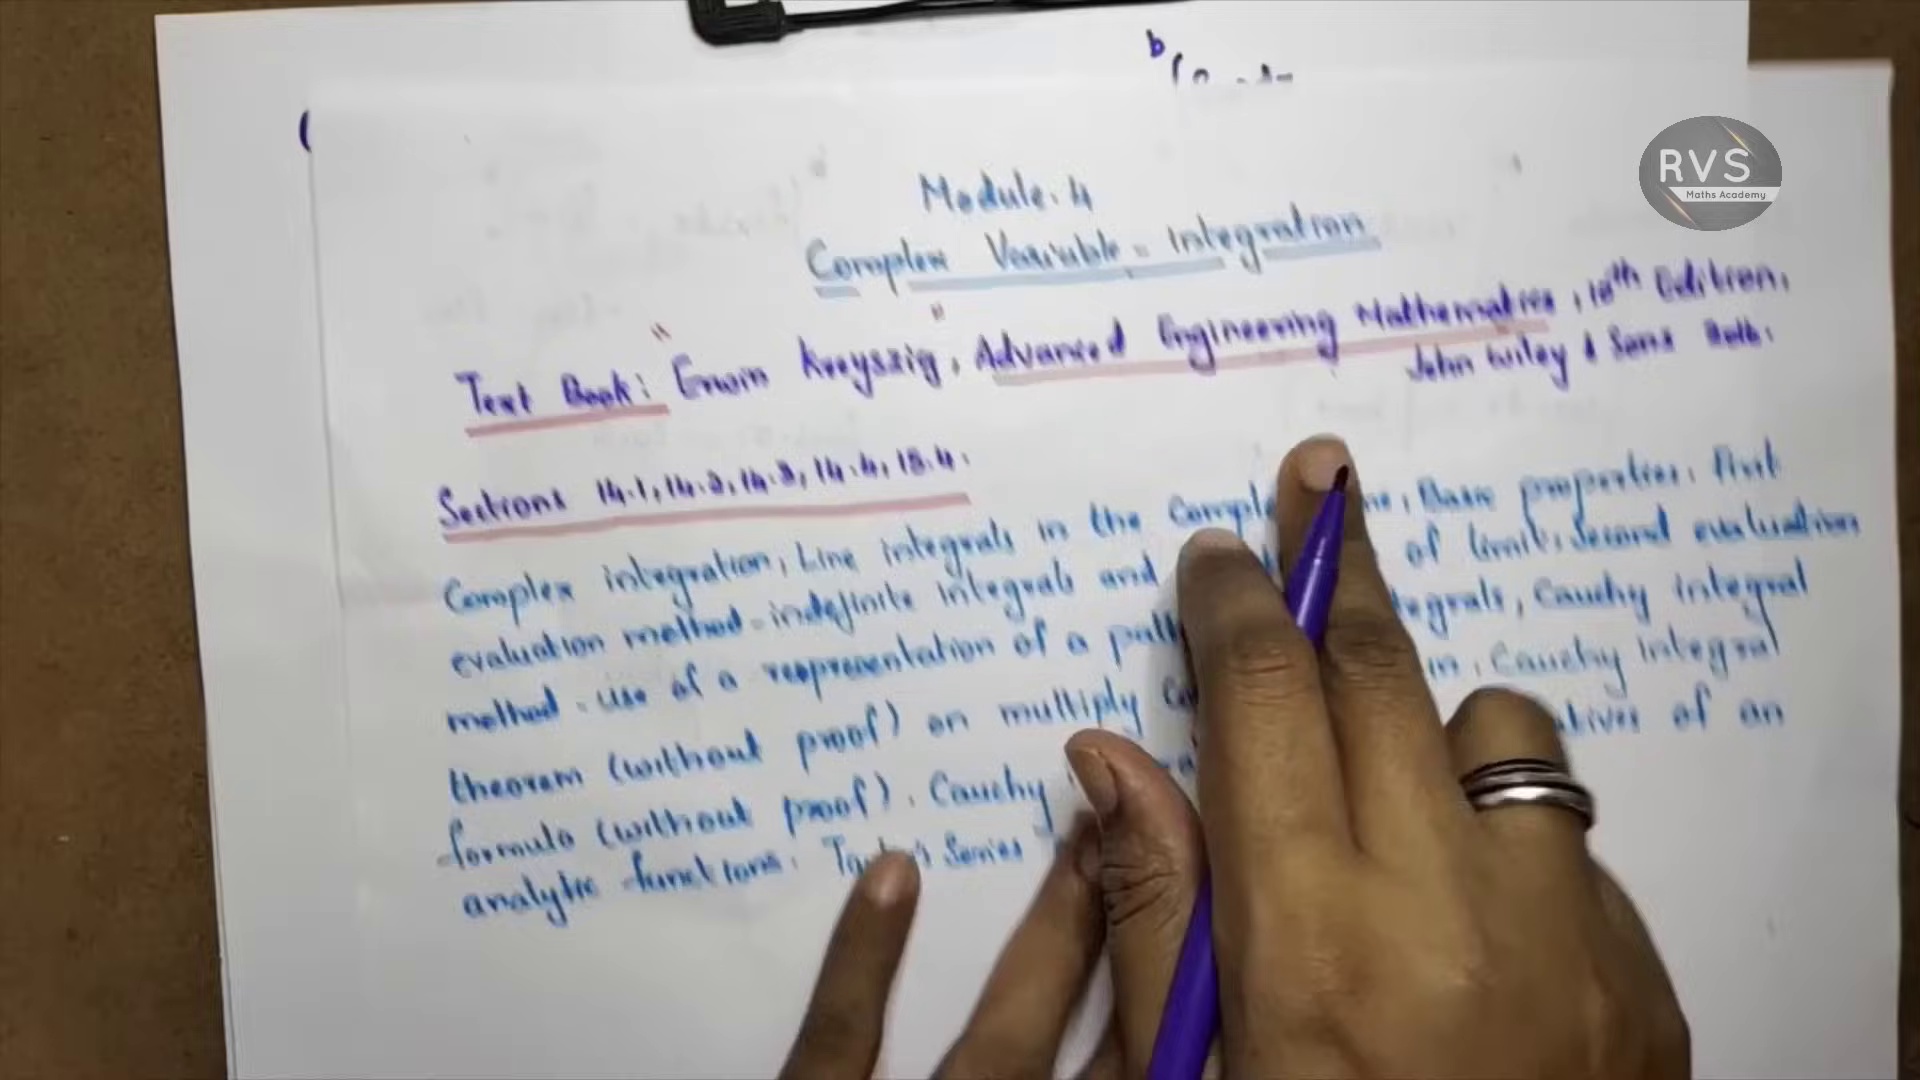 b
RVS
Maths Academy
Module.4
Complex Variable - Integration
Text Book: Erwin Kreyszig, Advanced Engineering Mathematics, 10th Edition,
John Wiley & Sons
Sections 14.1, 14.2, 14.3, 14.4, 15.4.
Complex integration, Line integrals in the Comple Basic properties. First
evaluation method - indefinite integrals and of limit, Second evaluation
method - use of a representation of a path Cauchy integral
theorem (without proof) on multiply Cauchy integral
formula (without proof). Cauchy of an
analytic functions. Series